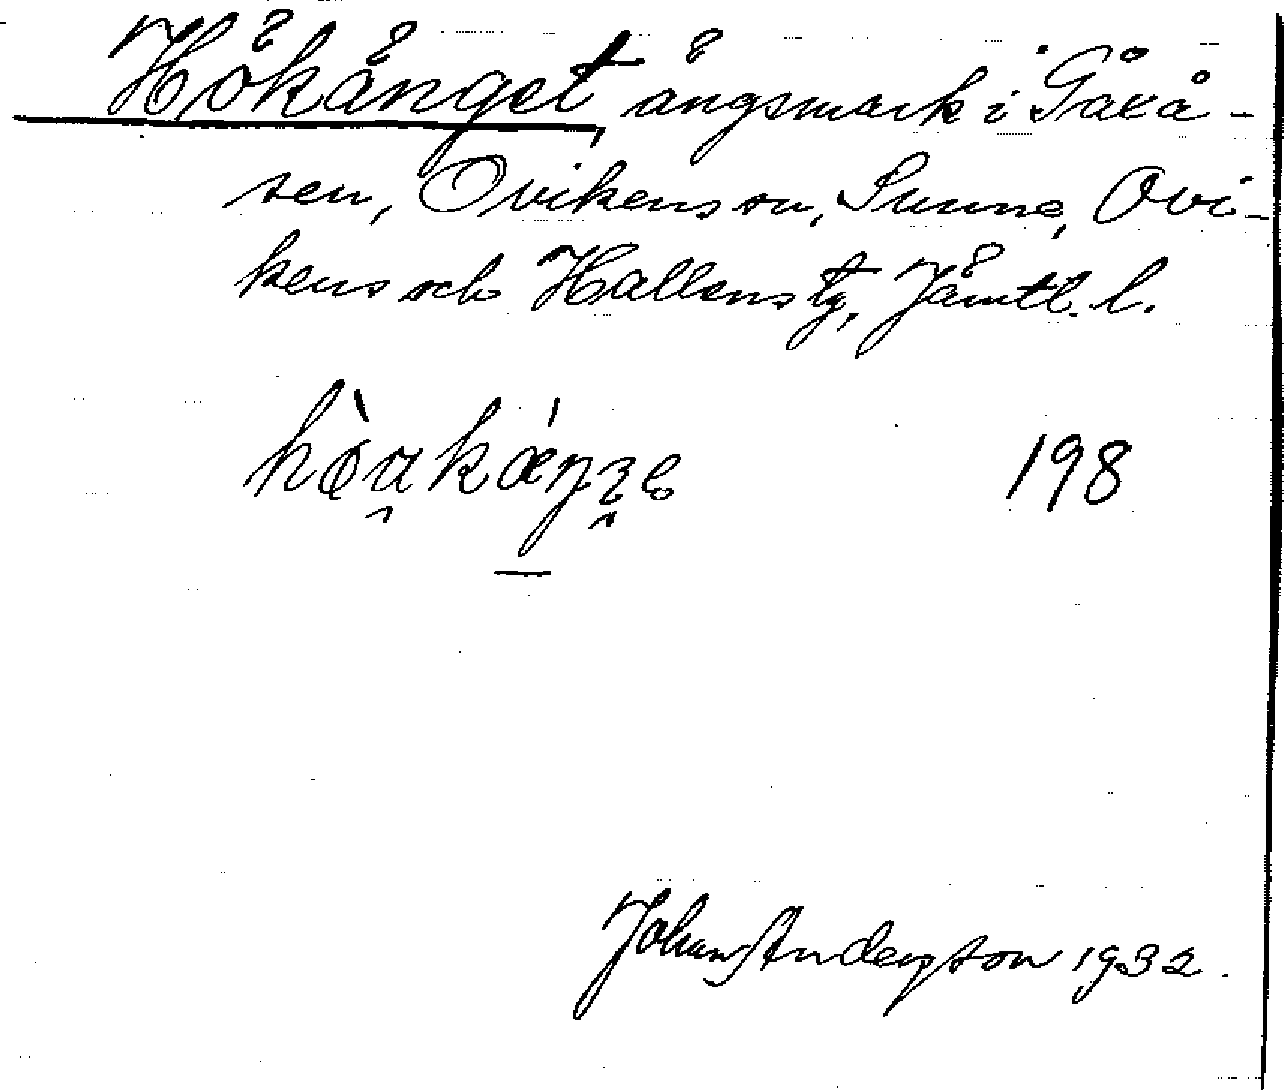 Hökänget, ängsmark i Gåxå-
sen, Ovikens sn, Sunne, Ovi-
kens och Hallens tg, Jämtl. l.
198
Johan Anderson 1932.